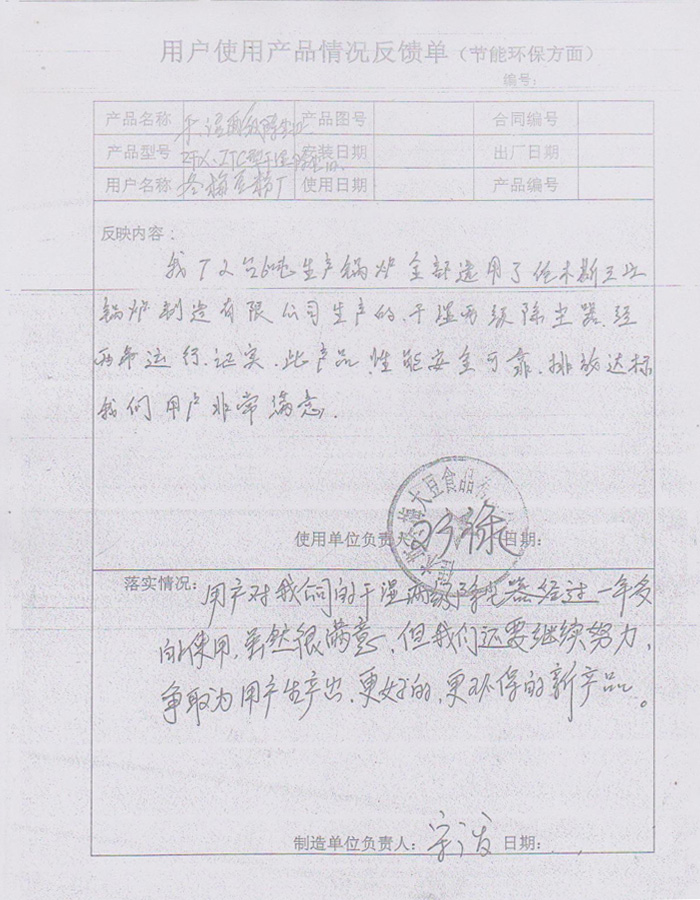 用户使用产品情况反馈单（节能环保方面）
编号：
产品名称 干湿两级除尘器 产品图号 合同编号
产品型号 安装日期 出厂日期
用户名称 冬梅豆粉厂 使用日期 产品编号
反映内容：
我厂2台6吨生产锅炉全部选用了佳木斯
锅炉制造有限公司生产的.干湿两级除尘器.经
两年运行.证实.此产品性能安全可靠、排放达标
我们用户非常满意.
大豆食品
使用单位负责人 日期：
落实情况：用户对我公司的干湿两级除尘器经过一年多
的使用,虽然很满意、但我们还要继续努力、
争取为用户生产出、更好的、更环保的新产品。
制造单位负责人： 日期：